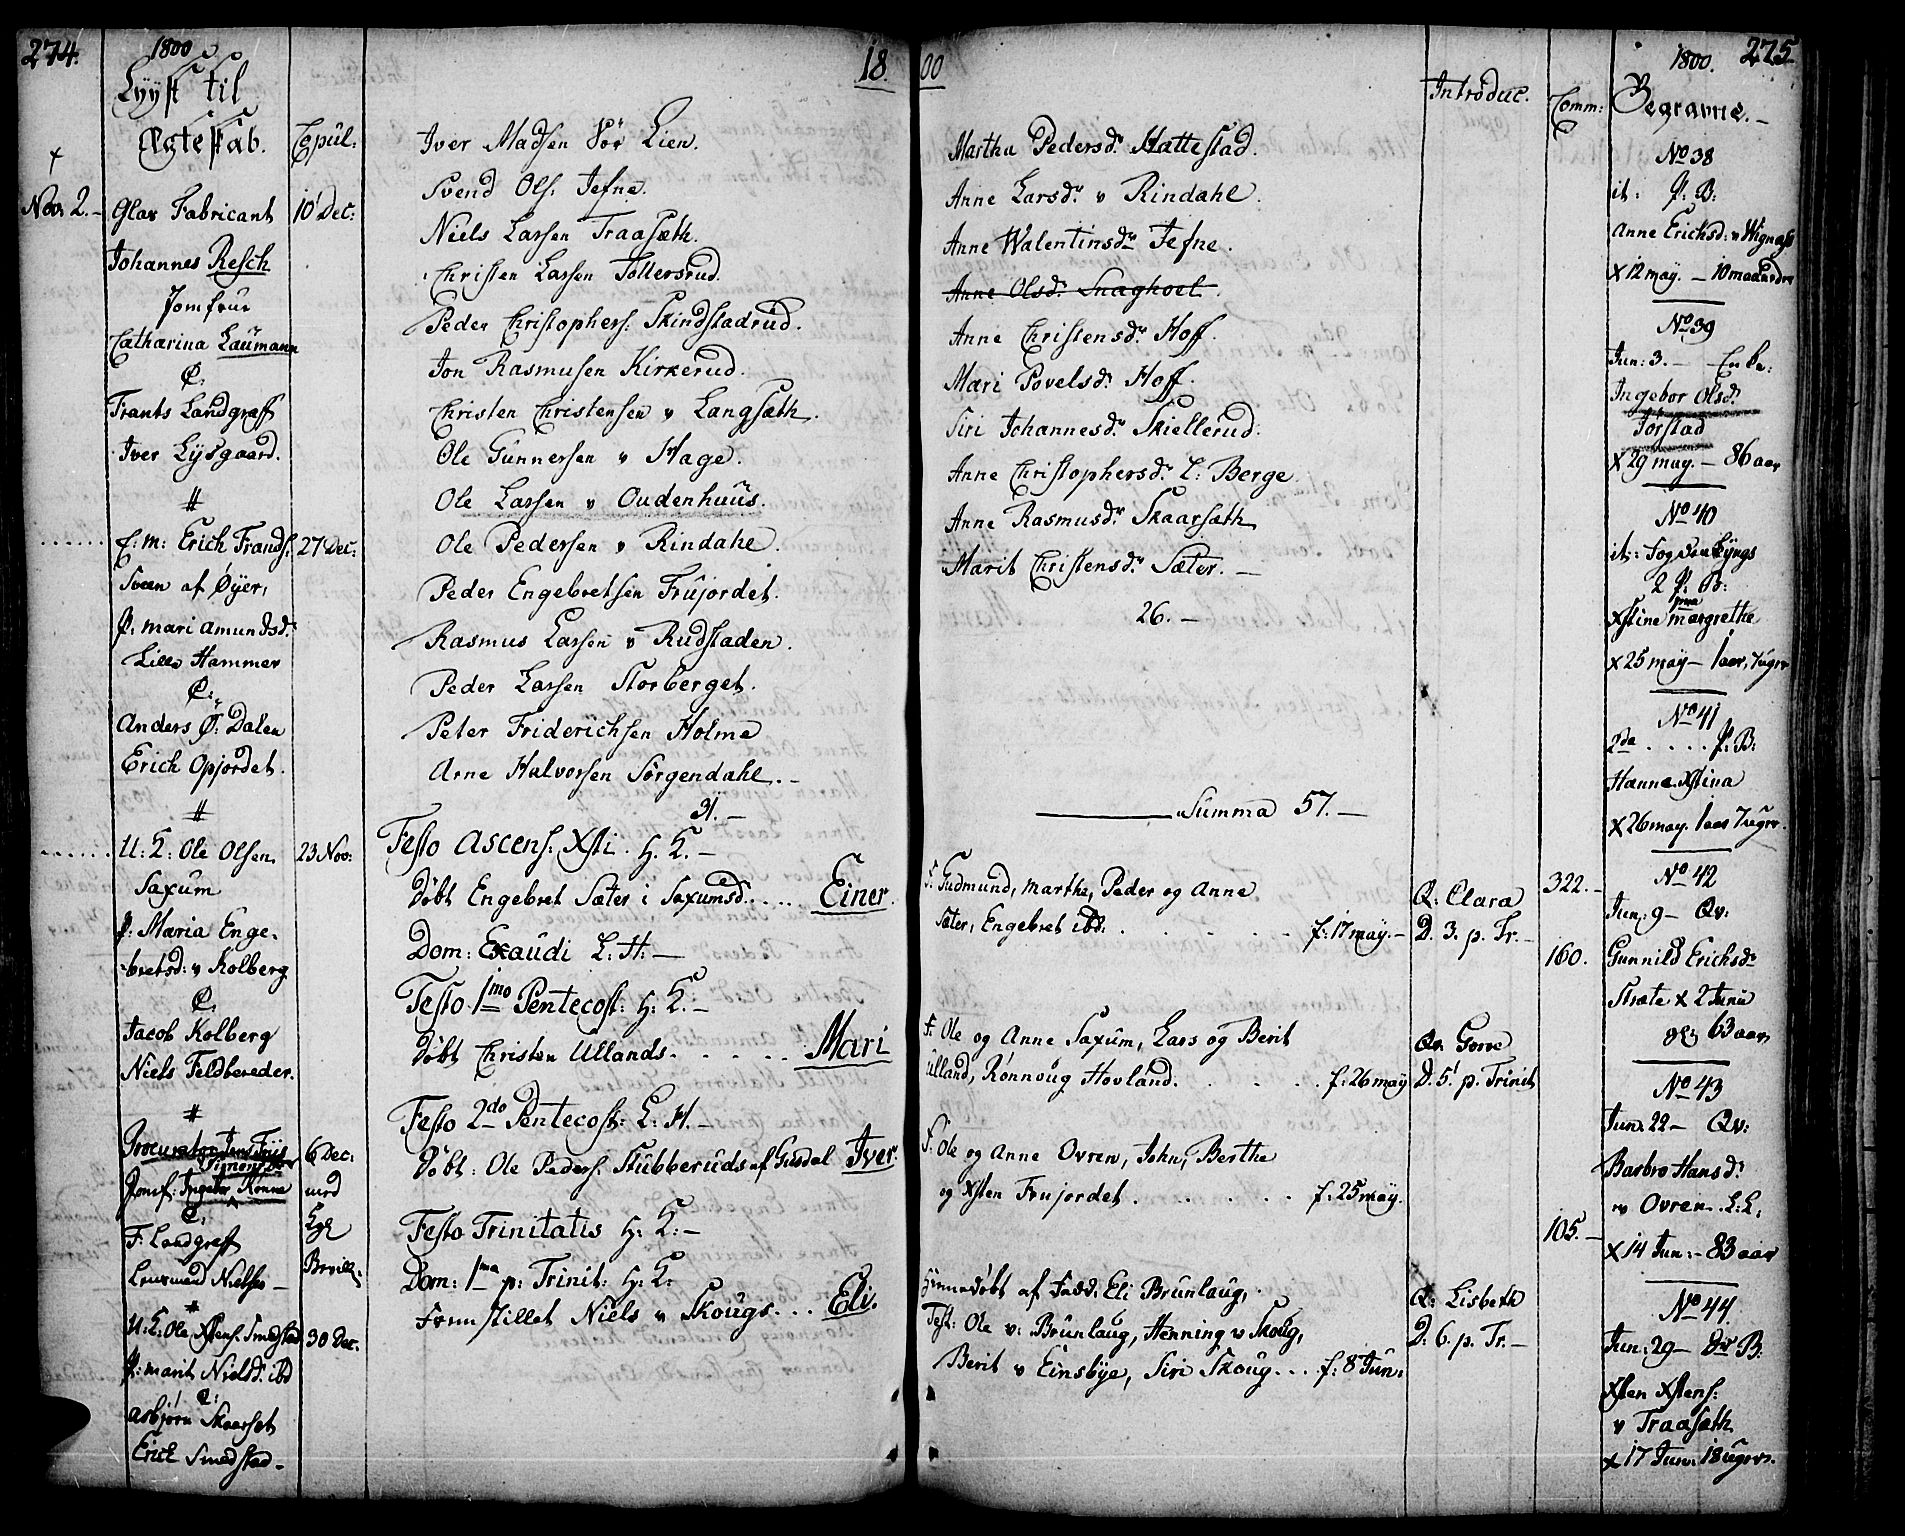 274.
1800
Lyyst til
Ægteskab.
Copul:
Nov. 2.
Glas Fabricant
10 Dec:
Johannes Resch
Jomfrue
Catharina Laumann
C.
Frants Landgraff
Iver Lysgaard.
#
E: m: Erich Frands: 27 Dec:
Sveen af Øyer,
P: mari amundsd:
Lille Hammer
C:
Anders Ø: Dalen
Erich Opjordet.
#
U: K: Ole Olsen 23 Nov:
Saxum
P: Maria Enge-
bretsd: v Kolberg
C.
Jacob Kolberg
Niels Feldbereder.
#
Procurator Jens
6 Dec:
Jomf: Ingebor Rønne
med
Kgl
C:
F: Landgreff
Nielsen
Bevill:
#
U: K: Ole Xstens: Smedstad 30 Dec:
P: marit Nielsd: ibd
C:
asbjørn Skaarset
Erich Smedstad
18
Iver Madsen Sør Lien.
Svend Ols: Jefne.
Niels Larsen Traasæth.
Christen Larsen Tollersrud.
Peder Christophers: Skindstadrud.
Jon Rasmusen Kirkerud.
Christen Christensen v Langsæth.
Ole Gunnersen v Hage.
Ole Larsen v Oudenhuus.
Ole Pedersen v Rindahl.
Peder Engebretsen Frujordet.
Rasmus Larsen v Rudstaden.
Peder Larsen Storberget.
Peter Friderichsen Holme
Arne Halvorsen Sørgendahl.
31.
Festo Ascens: Xsti. H: K.
Døbt Engebret Sæter i Saxumsd. .... Einer.
Dom: Exaudi L: H:
Festo 1mo Pentecost: H: K.
Døbt Christen Ullands. ..... Mari
Festo 2do Pentecost: L: H.
Døbt: Ole Peders: Stubberuds af Gusdal Iver.
Festo Trinitatis H: K:
Dom: 1ma p: Trinit: H: K:
Fremstillet Niels v Skougs... Eli.
00
Introduc.
Comm:
Martha Pedersd: Hattestad.
Anne Larsd: v Rindahl.
Anne Walentinsd: Jefne.
Anne Olsd: Snaghoel.
Anne Christensd: Hoff.
Mari Povelsd: Hoff.
Siri Johannesd: Skiellerud.
Anne Christophersd: L: Berge.
Anne Rasmusd: Skaarsæth
Marit Christensd: Sæter.
26.
Summa 57.
F: Gudmund, marthe, Peder og Anne
Sæter, Engebret ibd: ..... f: 17 may.
Q: Clara
D. 3. p. Tr.
322.
160.
F: Ole og Anne Saxum, Lars og Berit
Ulland, Rønnoug Hovland. .... f: 26 may
Qv. Gorve
D. 5. p. Trinit
F: Ole og Anne Ovren, John, Berthe
og Xsten Frujordet. ..... f: 25 may.
105.
Hiemedøbt af Eli Brunlaug.
Test: Ole v: Brunlaug, Henning v Skoug,
Berit v Einsbye, Siri Skoug... f: 8 Jun:
Q: Lisbeth
D: 6. p. Tr.
1800.
275
Begravne.
No 38
it: P: B:
Anne Erichsd: v Wignæss
x 12 may. 10 maaneder
No 39
Jun: 3. Enke:
Ingebor Olsd:
Jørstad
x 29 may. 86 aar
No 40
it: Sogden Lyngs
2 P: B:
Xstine margrethe
x 25 may 1 aar, 7 uger
No 41
2de .... P: B:
Hanne Xstina
x 26 may. 1 aar 7 uger.
No 42
Jun: 9 Qv:
Gunnild Erichsd:
Stræte x 2 Junii
63 aar
No 43
Jun: 22 Qv:
Barbro Hansd:
v Ovren. L: L:
x 14 Jun: 83 aar
No 44.
Jun: 29 Dr B:
Xsten Xstens:
v Traasæth
x 17 Jun: 18 uger.